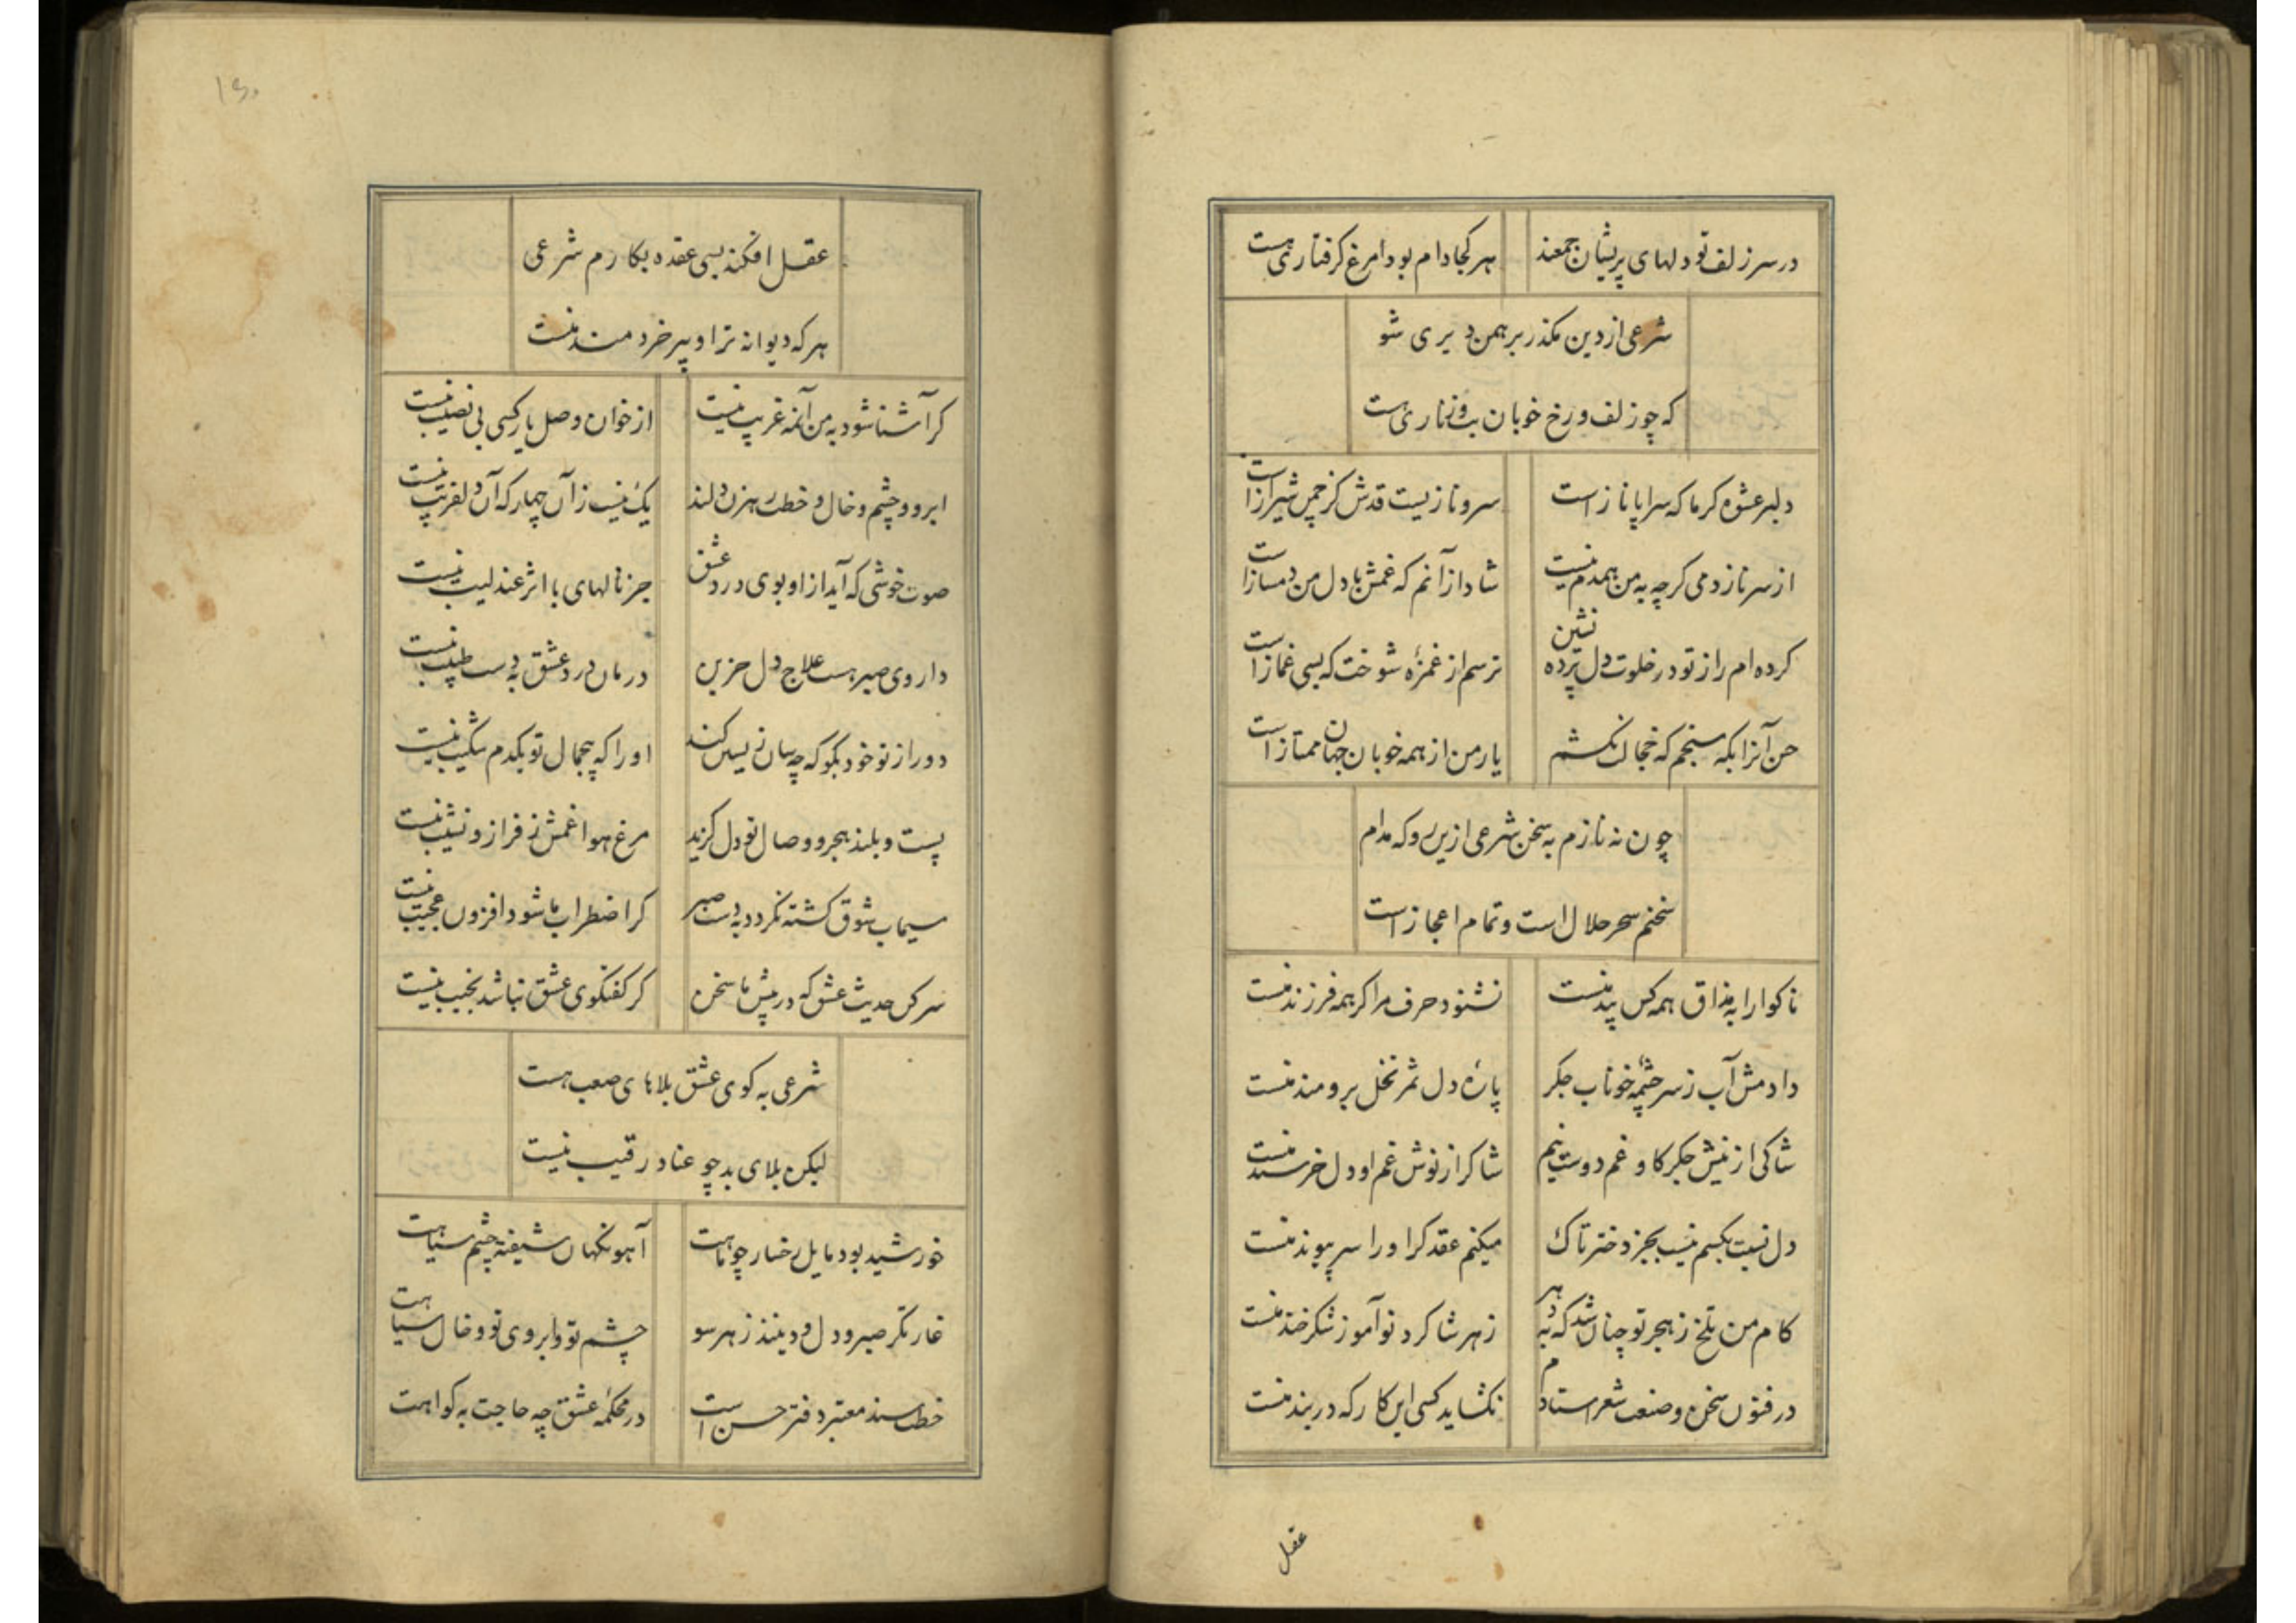 در سر زلف تو دلهای پریشان جمعند
هر کجا دام بود مرغ کرفتاری هست
شرعی از دین مکذر برهمن دیری شو
که چو زلف و رخ خوبان بت و زناری هست
دلبر عشوه کر ما که سراپا ناز است
سرو نازیست قدش کز چمن شیراز است
از سر ناز دمی کرچه به من همدم نیست
شاد از آنم که غمش با دل من دمساز است
کرده ام راز تو در خلوت دل پرده نشین
ترسم از غمزهٔ شوخت که بسی غماز است
حسن آنرا بکه سنجم که خجالت نکشم
یار من از همه خوبان جهان ممتاز است
چون نه نازم به سخن شرعی ازین رو که مدام
سخنم سحر حلال است و تمام اعجاز است
ناکوارا به مذاق همه کس پند منست
نشنود حرف مرا کر همه فرزند منست
دادمش آب ز سر چشمهٔ خوناب جکر
پارهٔ دل ثمر نخل برومند منست
شاکی از نیش جکر کاو غم دوست نیم
شاکر از نوش غم او دل خرسند منست
دل نسبت بکسم نیست بجز دختر تاک
میکنم عقد کر او را سر پیوند منست
کام من تلخ ز هجر تو چنان شد که به دهر
زهر شاکرد نوآموز شکرخند منست
در فنون سخن و صنعت شعر استادم
نکشاید کسی این کار که در بند منست
عقل
عقل افکند بسی عقده بکارم شرعی
هر که دیوانه تر او پیر خردمند منست
کر آشنا شود به من آنمه غریب نیست
از خوان وصل یار کسی بی نصیب نیست
ابرو و چشم و خال و خطت رهزن دلند
یک نیست زآن چهار که آن دلفریب نیست
صوت خوشی که آید از او بوی درد عشق
جز نالهای با اثر عندلیب نیست
داروی صبر هست علاج دل حزین
درمان درد عشق به دست طبیب نیست
دور از تو خود بکو که چه سان زیستن کند
او را که بیجمال تو یکدم شکیب نیست
پست و بلند هجر و وصال تو دل کزید
مرغ هوا غمش ز فراز و نشیب نیست
سیماب شوق کشته نکردد به دست صبر
کر اضطراب ما شود افزون عجیب نیست
سر کن حدیث عشق که در پیش ما سخن
کر کفتکوی عشق نباشد نجیب نیست
شرعی به کوی عشق بلاهای صعب هست
لیکن بلای بد چو عناد رقیب نیست
خورشید بود مایل رخسار چو ماهت
آهو نکهان شیفتهٔ چشم سیاهت
غارتکر صبر و دل و دینند ز هر سو
چشم تو و ابروی تو و خال سیاهت
خطت سند معتبر دفتر حسن است
در محکمهٔ عشق چه حاجت به کواهت